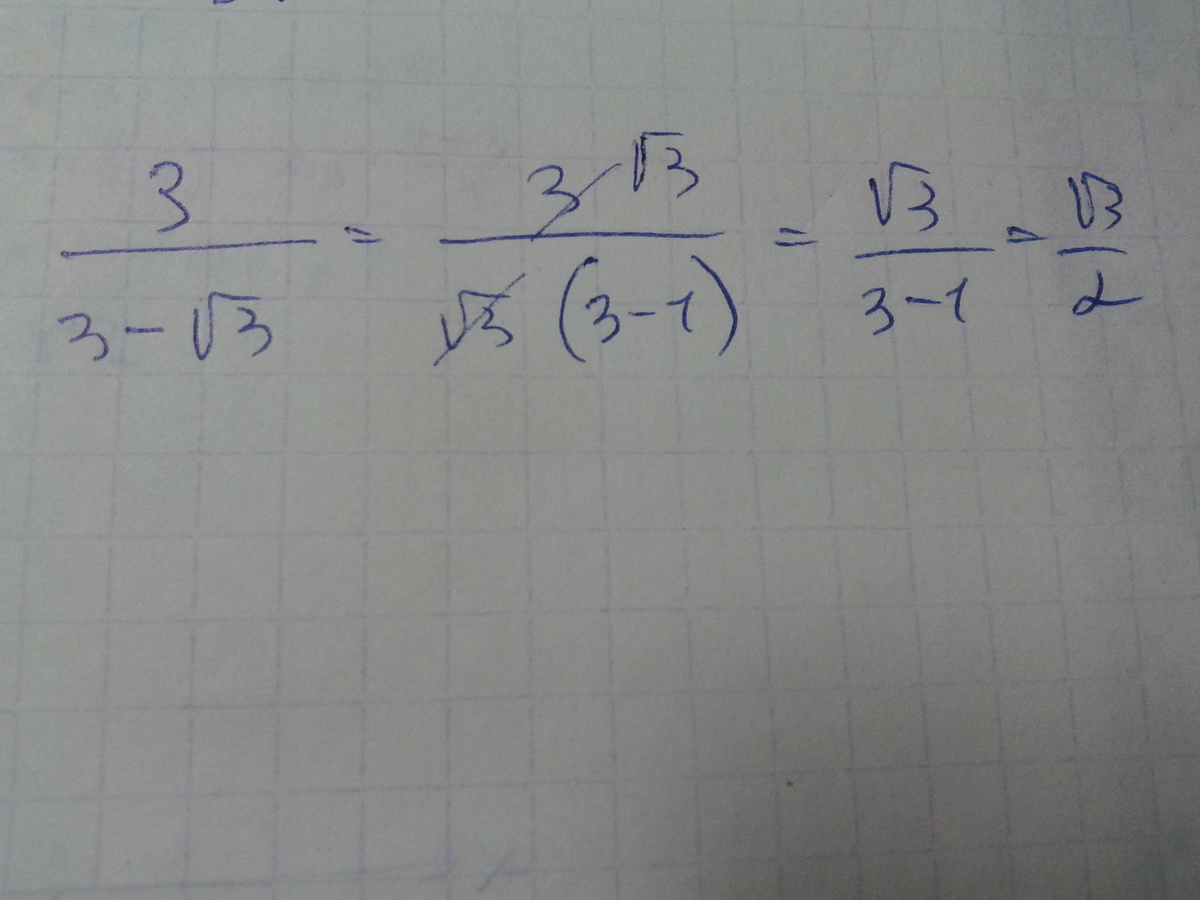 3/(3-√3) = 3 √3/(√3 (3-1)) = √3/(3-1) = √3/2